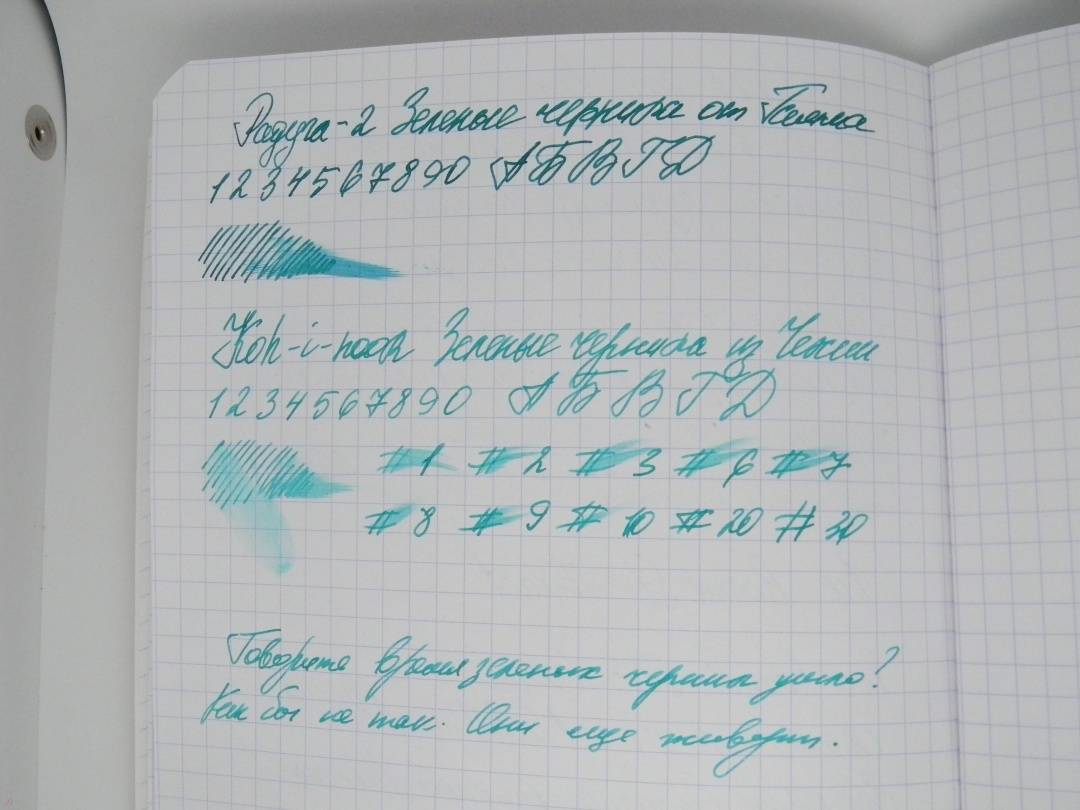 Радуга-2 Зеленые чернила от Гамма
1234567890 АБВГД
Koh-i-noor Зеленые чернила из Чехии
1234567890 АБВГД
#1 #2 #3 #6 #7
#8 #9 #10 #20 #30
Говорите время зеленых чернил ушло?
Как бы не так. Они еще